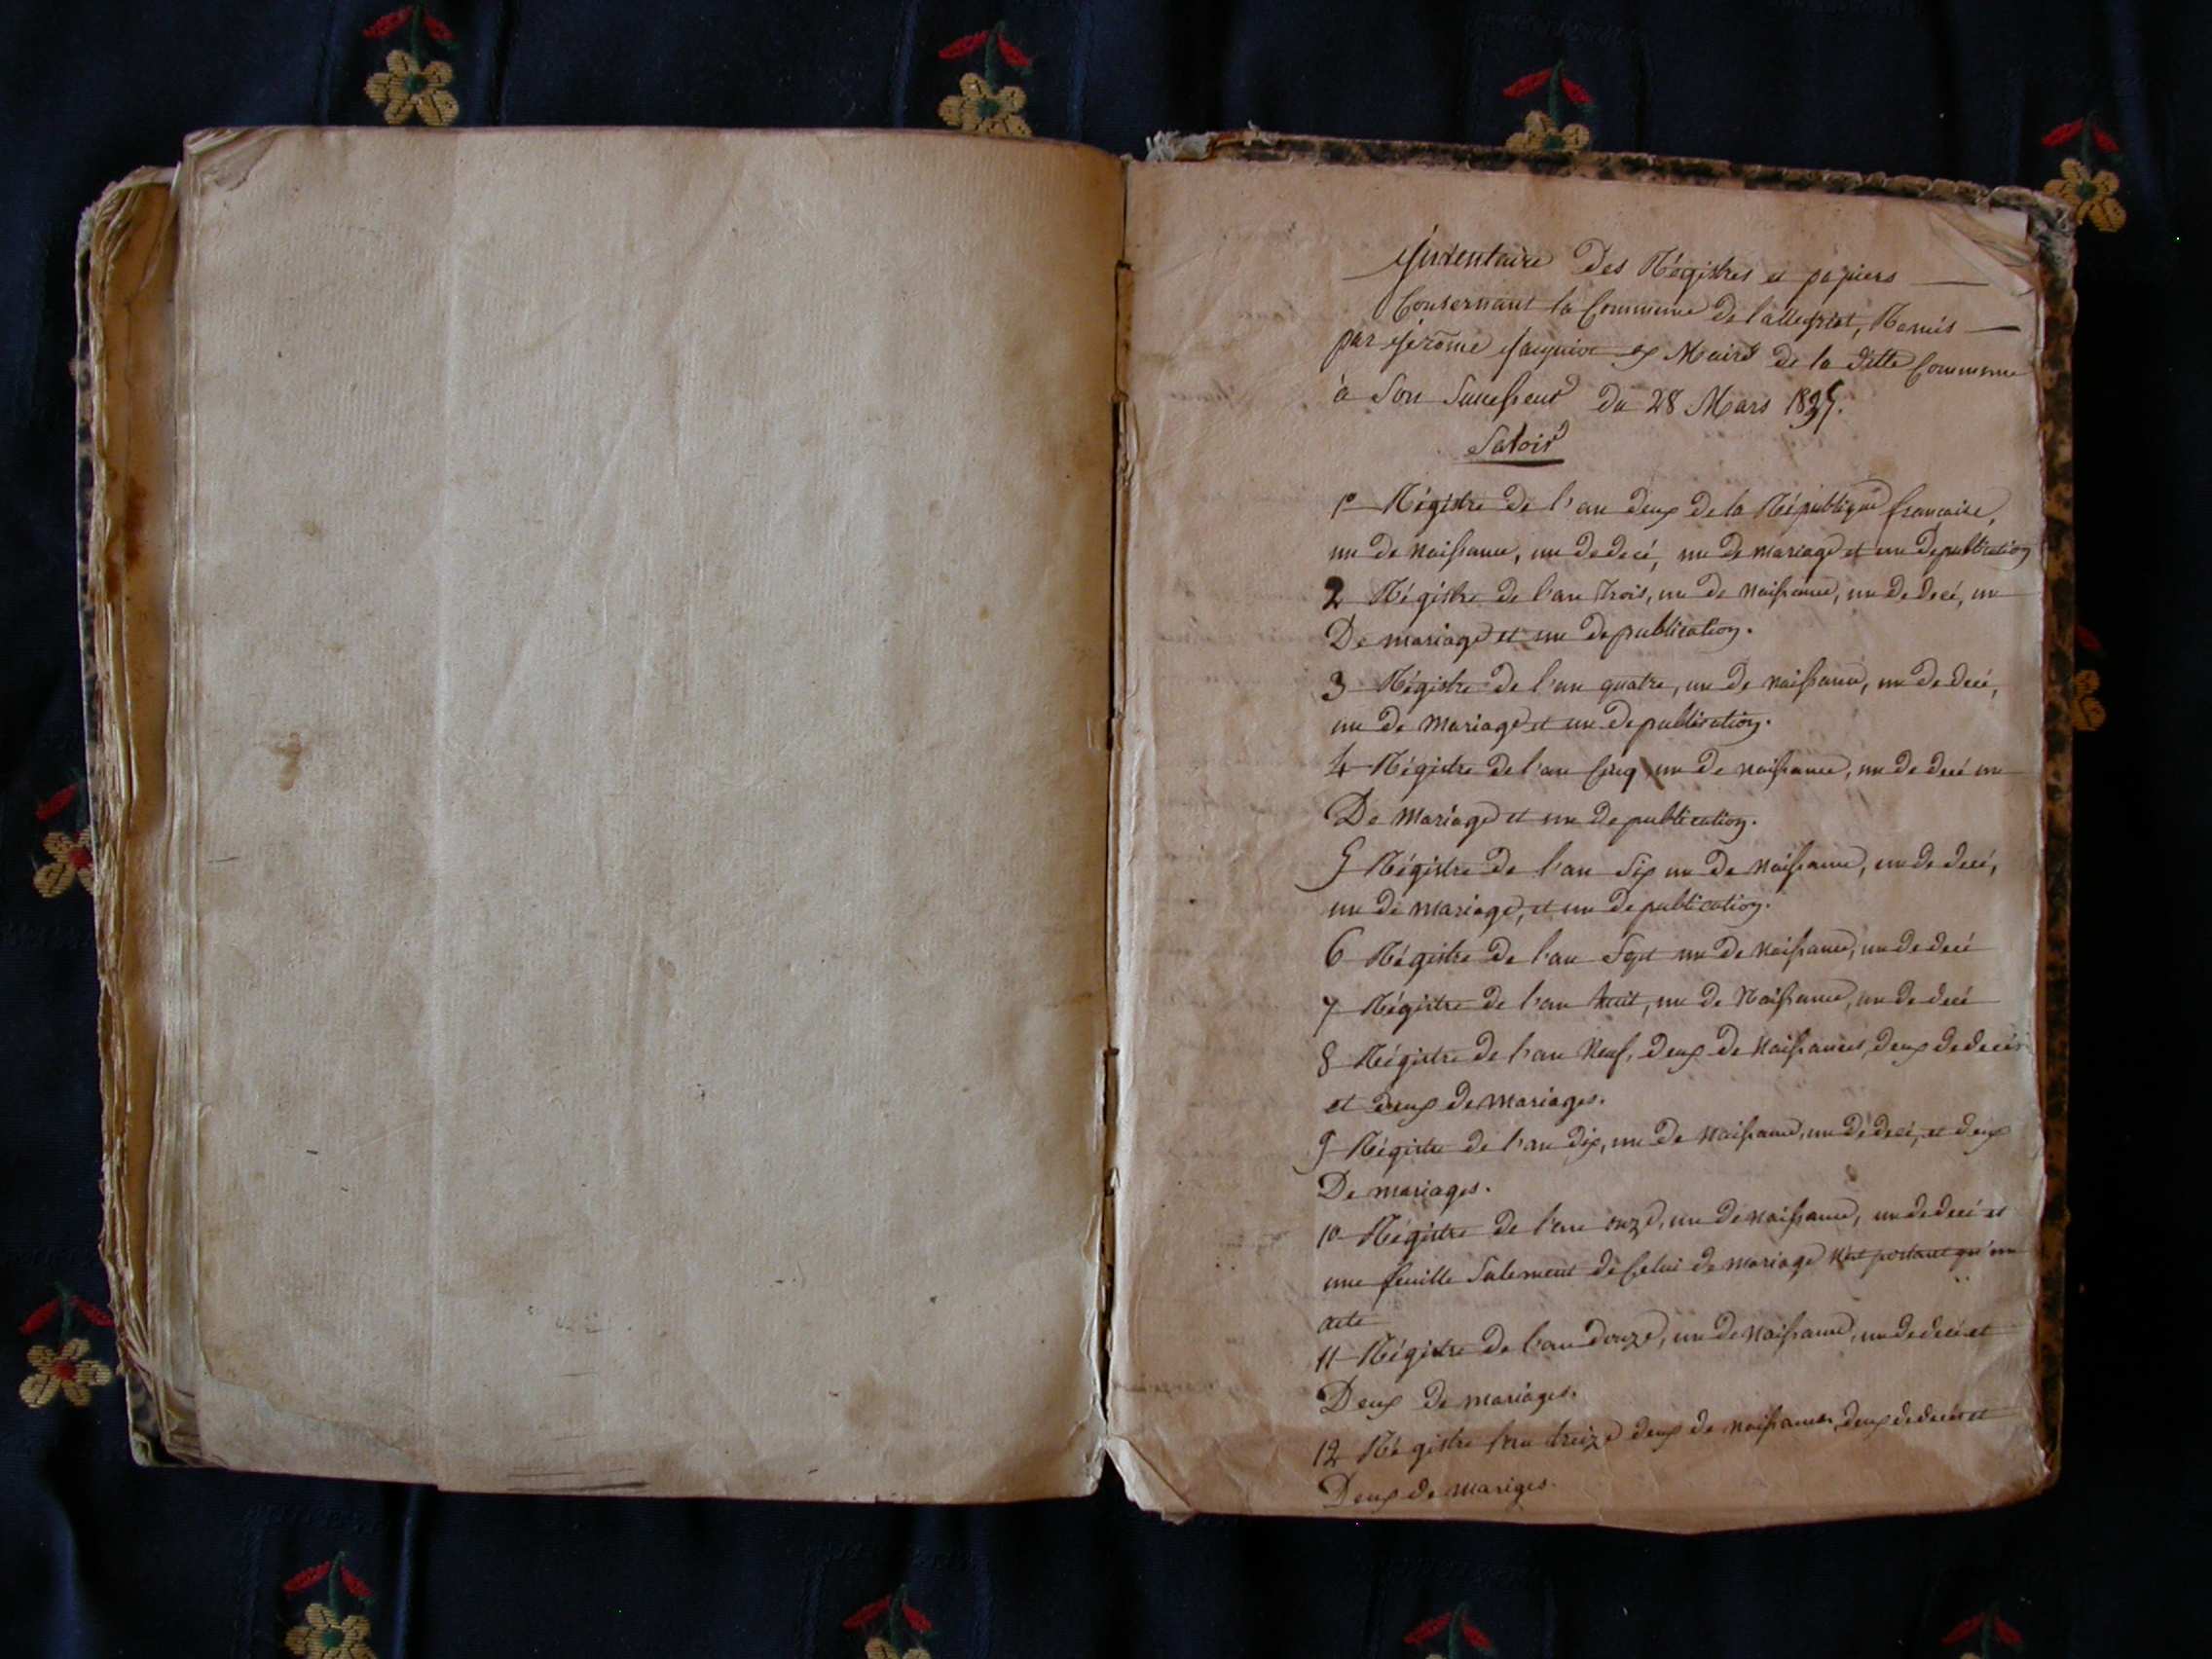 Inventaire Des Régistres et papiers
Consernant la Commune de Lallegriet, Remis
par Jérôme Jacquier ex Maire de la ditte Commune
à Son Sucesseur du 28 Mars 1835.
Savoir
1º Régistre De l'an deux De la République francaise,
un De naissance, un De decé, un De mariage et un De publication
2 Régistre De l'an trois, un De naissance, un De decé, un
De mariage et un De publication.
3 Régistre De l'an quatre, un De naissance, un De decé,
un De mariage et un De publication.
4 Régistre De l'an Cinq un De naissance, un De decé un
De mariage et un De publication.
5 Régistre De l'an Six un De naissance, un De decé,
un De mariage, et un De publication.
6 Régistre De l'an Sept un De naissance, un De decé
7 Régistre De l'an huit, un De Naissance, un De decé
8 Régistre De l'an Neuf, Deux De Naissances, deux De decés
et deux De mariages.
9 Régistre De l'an Dix, un De naissance, un De decé, et deux
De mariages.
10 Régistre De l'an onze, un De naissance, un De decé et
une feuille Salement de Celui De mariage N'est portant qu'un
acte
11 Régistre De l'an Douze, un De naissance, un De decé et
Deux De mariages.
12 Régistre l'an treize deux De naissances, deux De decés et
Deux De mariges.